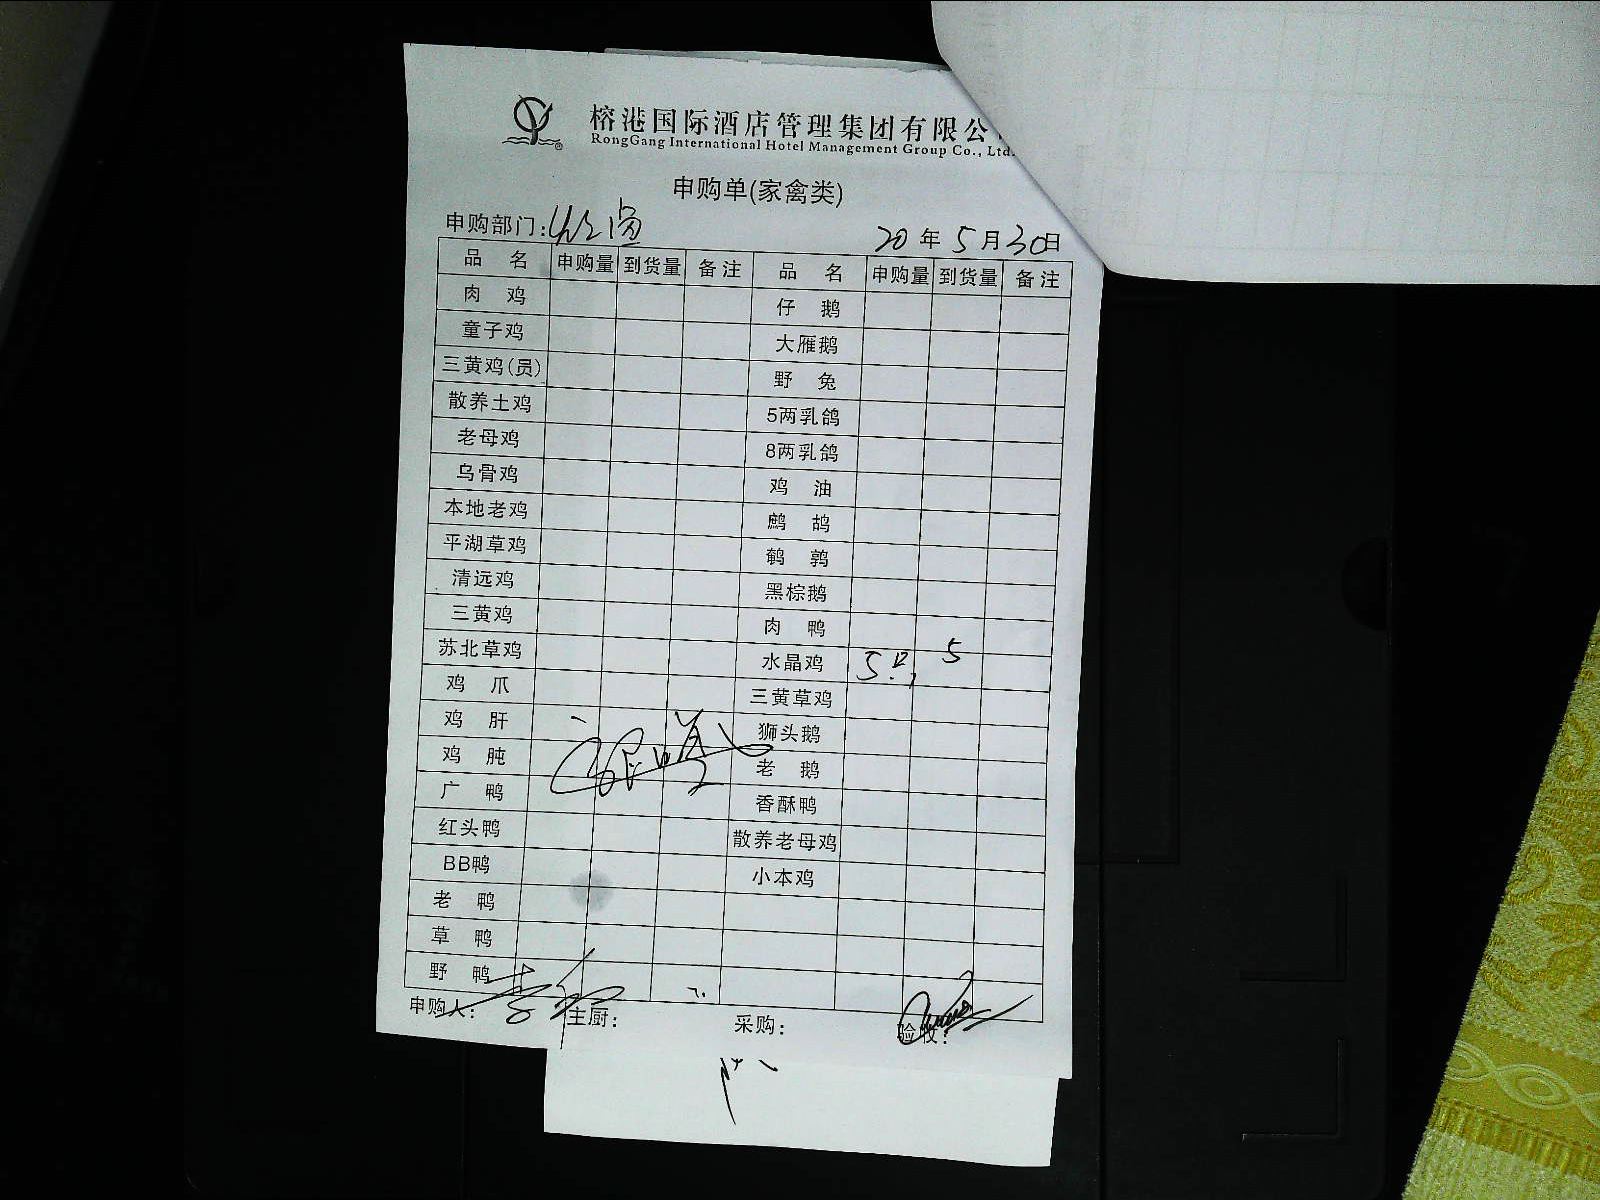 榕港国际酒店管理集团有限公
RongGang International Hotel Management Group Co., Ltd.
申购单(家禽类)
申购部门: 20年5月30日
品名 申购量 到货量 备注 品名 申购量 到货量 备注
肉鸡 仔鹅
童子鸡 大雁鹅
三黄鸡(员) 野兔
散养土鸡 5两乳鸽
老母鸡 8两乳鸽
乌骨鸡 鸡油
本地老鸡 鹧鸪
平湖草鸡 鹌鹑
清远鸡 黑棕鹅
三黄鸡 肉鸭
苏北草鸡 水晶鸡 5只 5
鸡爪 三黄草鸡
鸡肝 狮头鹅
鸡肫 老鹅
广鸭 香酥鸭
红头鸭 散养老母鸡
BB鸭 小本鸡
老鸭
草鸭
野鸭
申购人: 主厨: 采购: 验收: